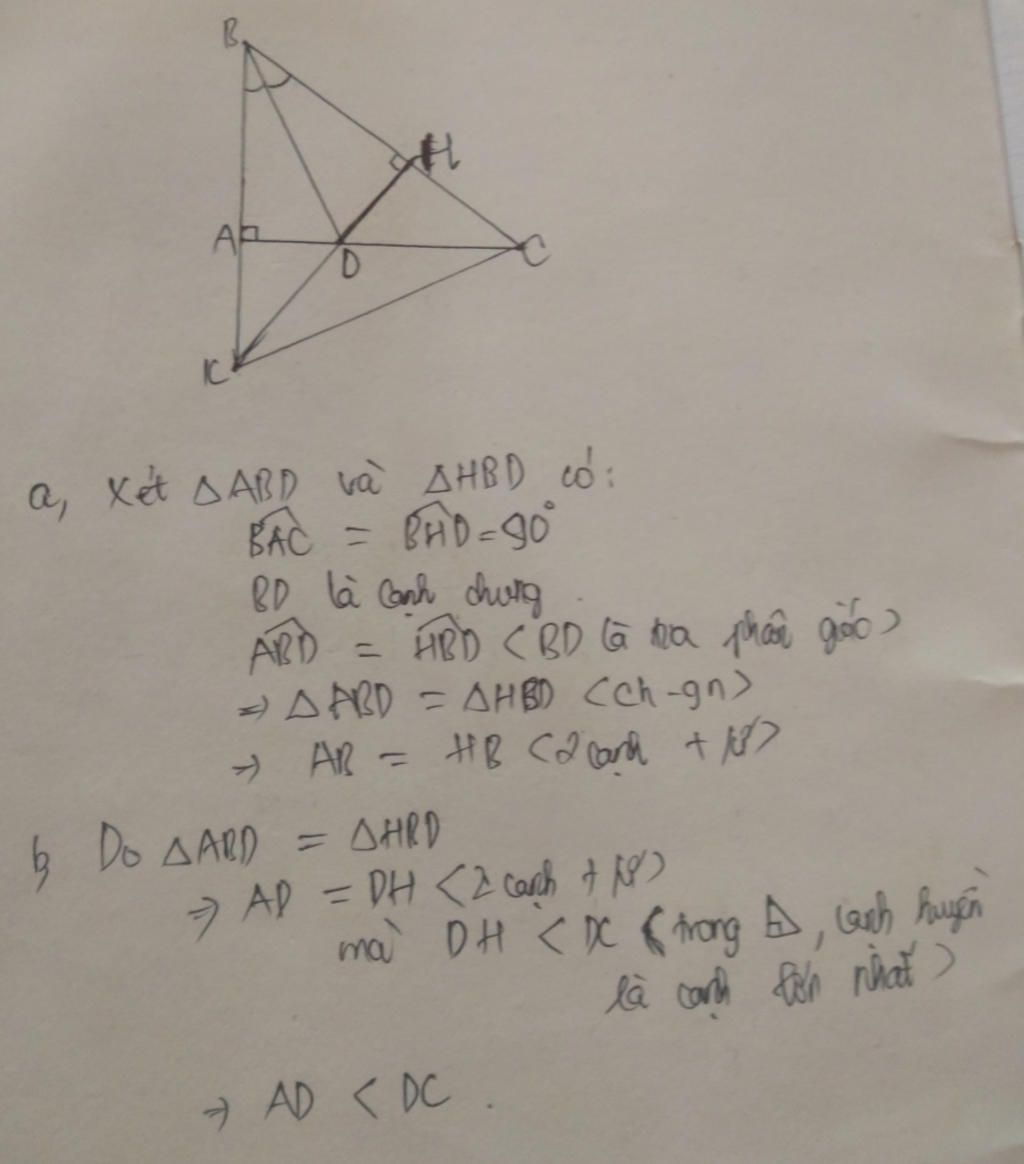 B
H
A
D
C
K
a, Xét △ABD và △HBD có:
\widehat{BAC} = \widehat{BHD} = 90°
BD là cạnh chung.
\widehat{ABD} = \widehat{HBD} <BD là tia phân giác>
=> △ABD = △HBD <ch-gn>
=> AB = HB <2 cạnh + ứ>
b, Do △ABD = △HBD
=> AD = DH <2 cạnh + ứ>
mà DH < DC (trong ⊿, cạnh huyền
là cạnh lớn nhất>
=> AD < DC.